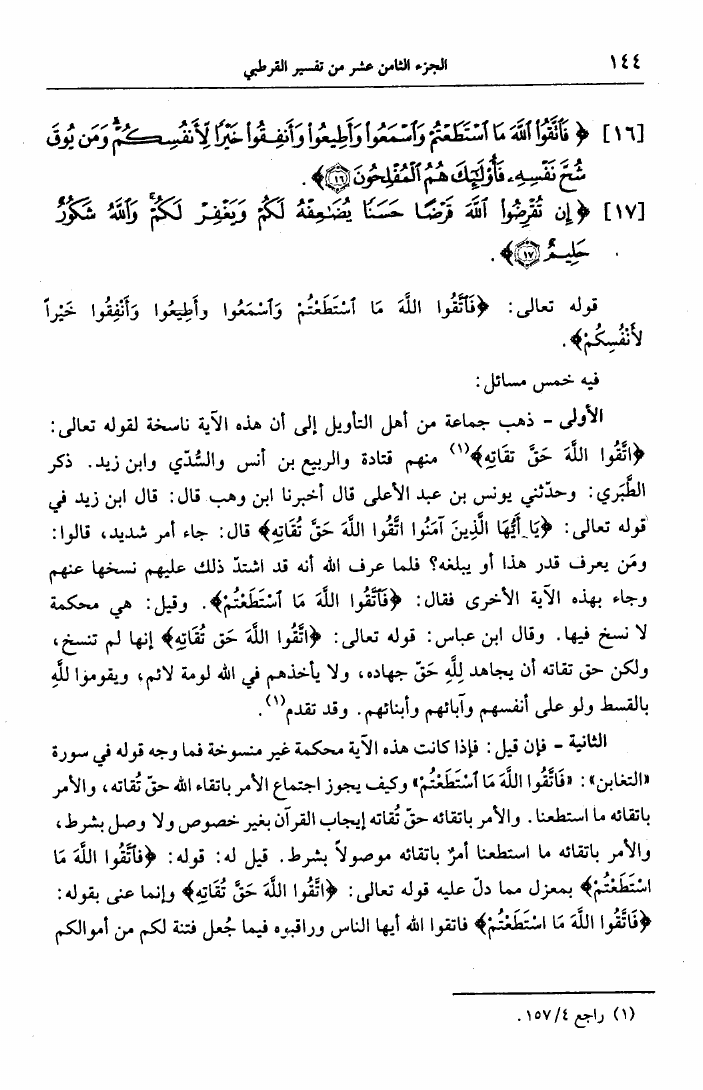 ١٤٤ الجزء الثامن عشر من تفسير القرطبي
[١٦] ﴿ فَاتَّقُوا اللَّهَ مَا اسْتَطَعْتُمْ وَاسْمَعُوا وَأَطِيعُوا وَأَنفِقُوا خَيْرًا لِّأَنفُسِكُمْ ۗ وَمَن يُوقَ
شُحَّ نَفْسِهِ، فَأُوْلَٰٓئِكَ هُمُ الْمُفْلِحُونَ ۝١٦﴾ .
[١٧] ﴿ إِن تُقْرِضُوا اللَّهَ قَرْضًا حَسَنًا يُضَٰعِفْهُ لَكُمْ وَيَغْفِرْ لَكُمْ ۚ وَاللَّهُ شَكُورٌ
حَلِيمٌ ۝١٧﴾ .
قوله تعالى: ﴿فَاتَّقُوا اللَّهَ مَا اسْتَطَعْتُمْ وَاسْمَعُوا وأَطِيعُوا وَأَنْفِقُوا خَيْراً
لأَنْفُسِكُمْ﴾ .
فيه خمس مسائل:
الأولى - ذهب جماعة من أهل التأويل إلى أن هذه الآية ناسخة لقوله تعالى:
﴿اتَّقُوا اللَّهَ حَقَّ تقَاتِهِ﴾(١) منهم قتادة والربيع بن أنس والسُّدّي وابن زيد. ذكر
الطَّبَري: وحدّثني يونس بن عبد الأعلى قال أخبرنا ابن وهب قال: قال ابن زيد في
قوله تعالى: ﴿يَا أَيُّهَا الَّذِينَ آمَنُوا اتَّقُوا اللَّهَ حَقَّ تُقَاتِهِ﴾ قال: جاء أمر شديد، قالوا:
ومَن يعرف قدر هذا أو يبلغه؟ فلما عرف الله أنه قد اشتدّ ذلك عليهم نسخها عنهم
وجاء بهذه الآية الأخرى فقال: ﴿فَاتَّقُوا اللَّهَ مَا اسْتَطَعْتُمْ﴾. وقيل: هي محكمة
لا نسخ فيها. وقال ابن عباس: قوله تعالى: ﴿اتَّقُوا اللَّهَ حَق تُقَاتِهِ﴾ إنها لم تنسخ،
ولكن حق تقاته أن يجاهد لِلَّهِ حَقّ جهاده، ولا يأخذهم في الله لومة لائم، ويقوموا للَّهِ
بالقسط ولو على أنفسهم وآبائهم وأبنائهم. وقد تقدم(١).
الثانية - فإن قيل: فإذا كانت هذه الآية محكمة غير منسوخة فما وجه قوله في سورة
«التغابن»: «فَاتَّقُوا اللَّهَ مَا اسْتَطَعْتُمْ» وكيف يجوز اجتماع الأمر باتقاء الله حقّ تُقاته، والأمر
باتقائه ما استطعنا. والأمر باتقائه حقّ تُقاته إيجاب القرآن بغير خصوص ولا وصل بشرط،
والأمر باتقائه ما استطعنا أمرٌ باتقائه موصولاً بشرط. قيل له: قوله: ﴿فَاتَّقُوا اللَّهَ مَا
اسْتَطَعْتُمْ﴾ بمعزل مما دلّ عليه قوله تعالى: ﴿اتَّقُوا اللَّهَ حَقَّ تُقَاتِهِ﴾ وإنما عنى بقوله:
﴿فَاتَّقُوا اللَّهَ مَا اسْتَطَعْتُمْ﴾ فاتقوا الله أيها الناس وراقبوه فيما جُعل فتنة لكم من أموالكم
(١) راجع ٤/ ١٥٧ .